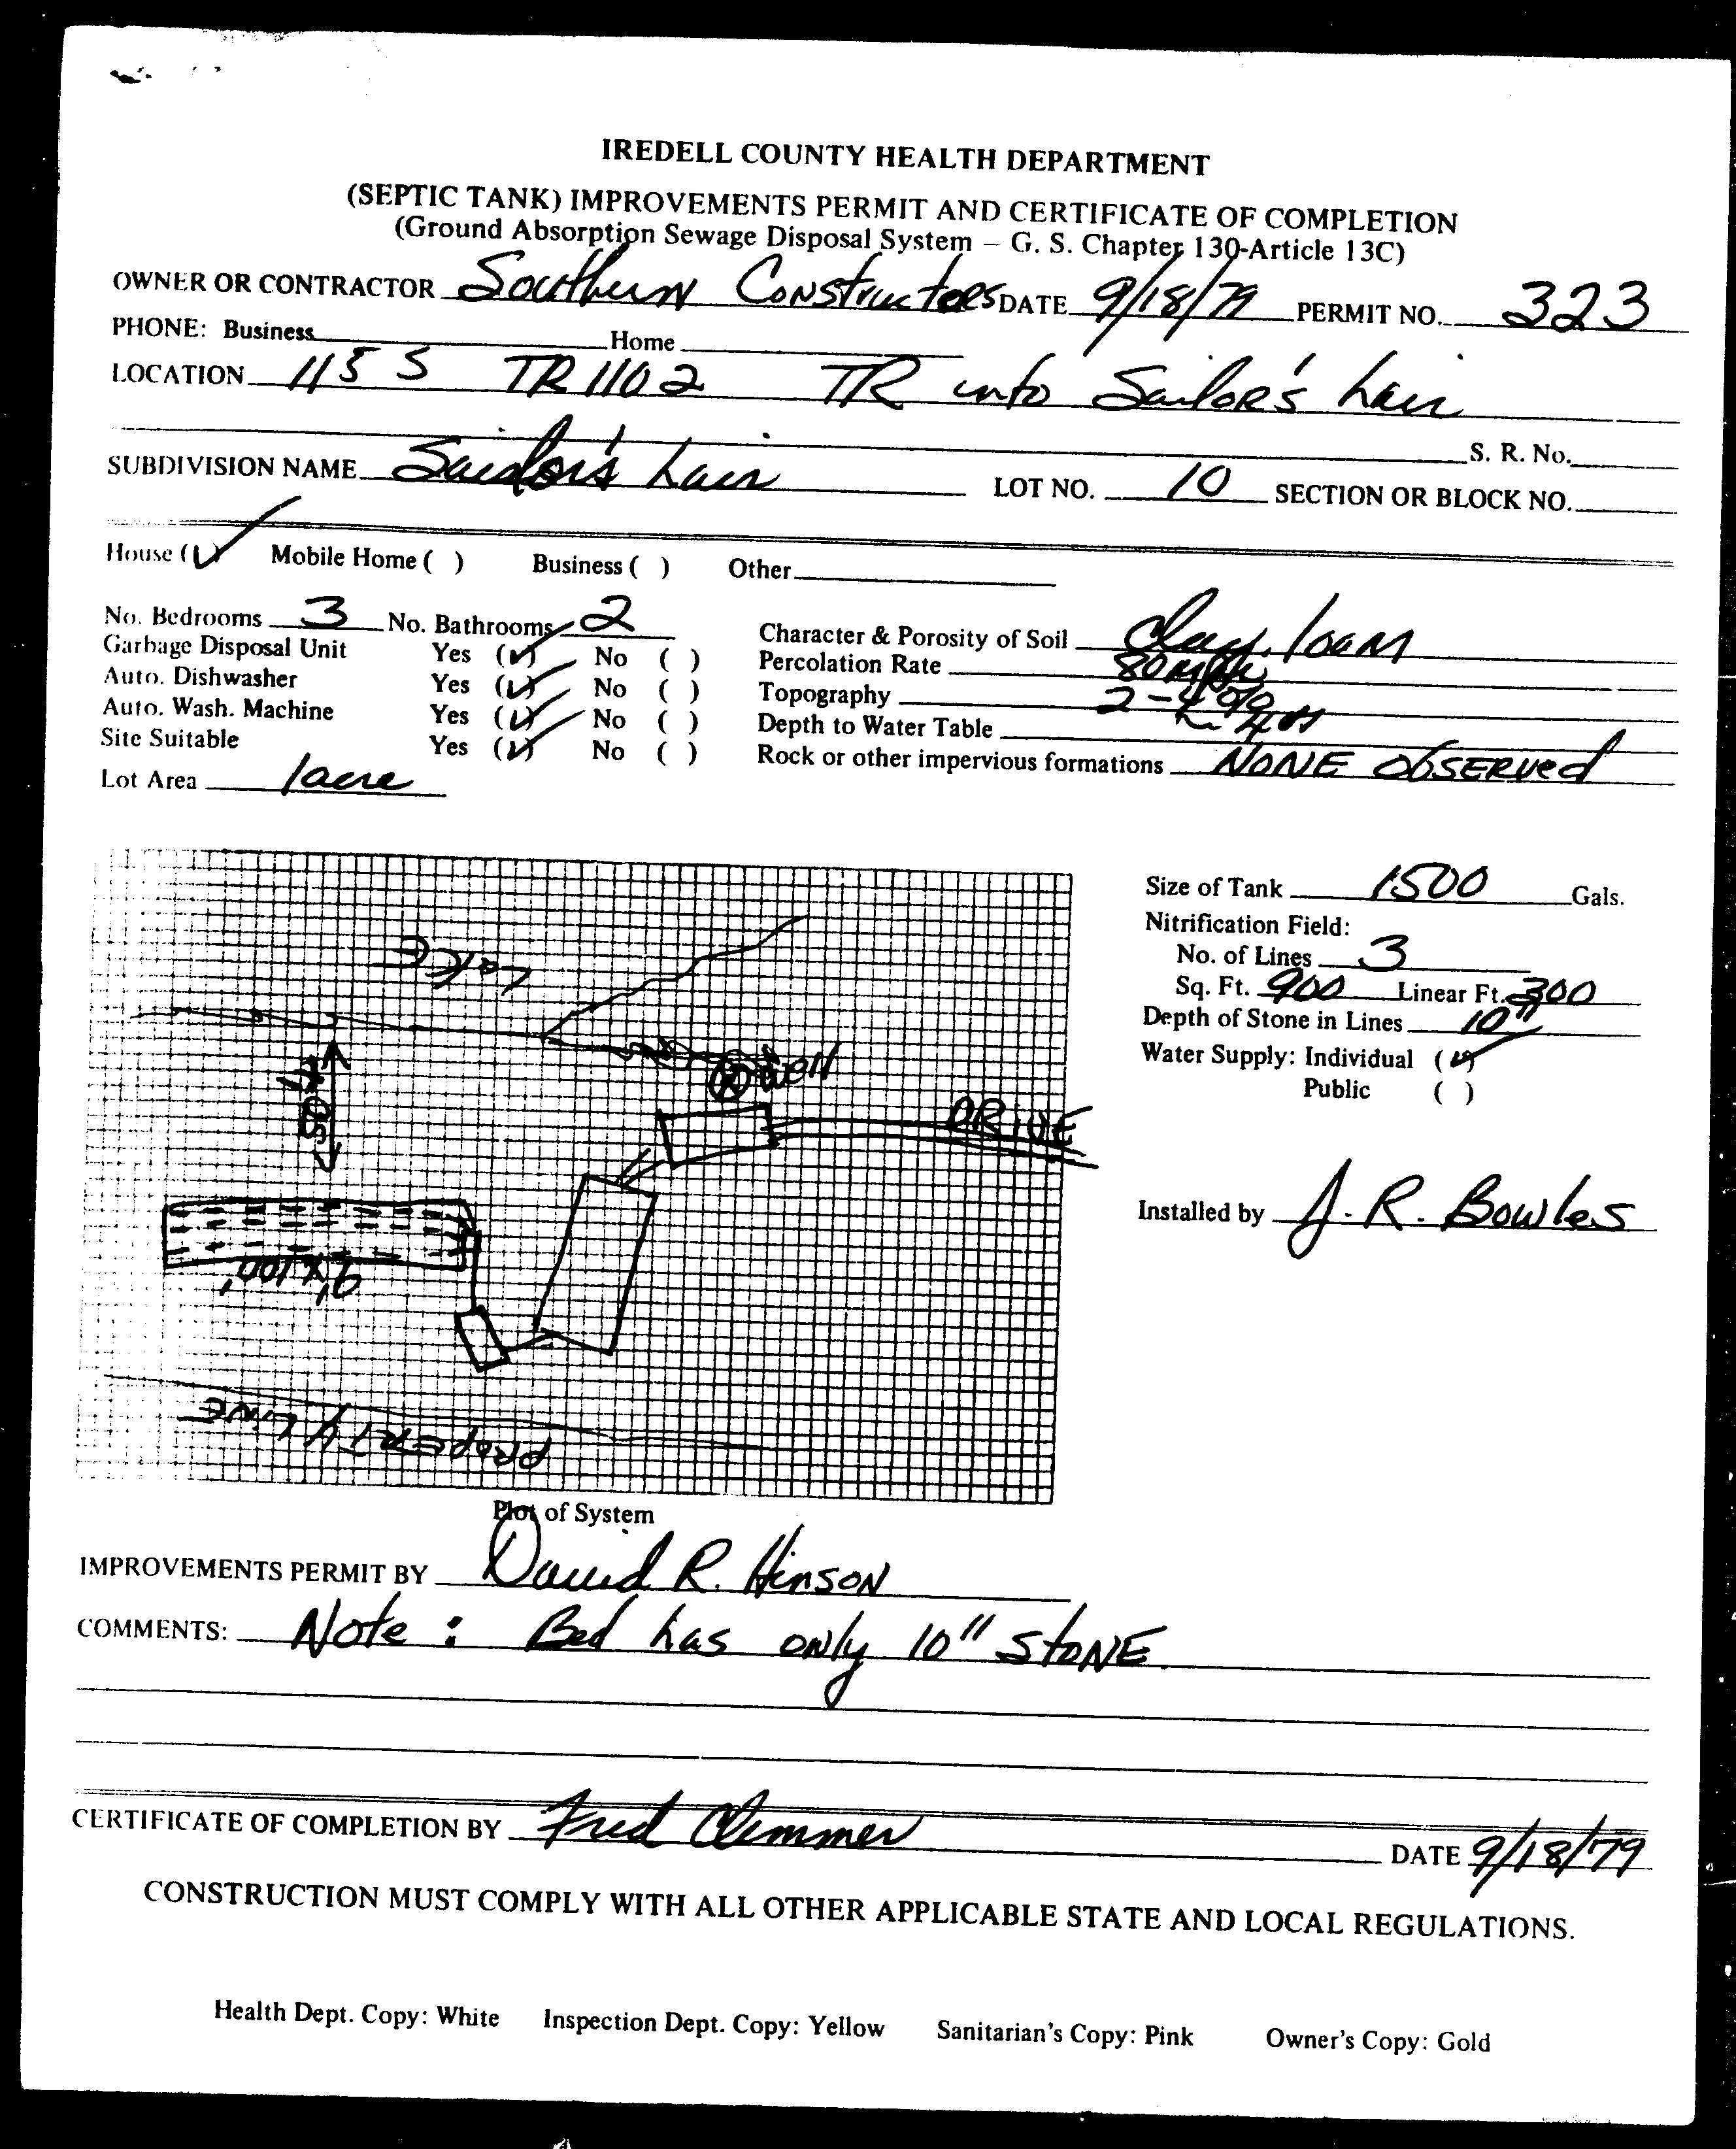 IREDELL COUNTY HEALTH DEPARTMENT
(SEPTIC TANK) IMPROVEMENTS PERMIT AND CERTIFICATE OF COMPLETION
(Ground Absorption Sewage Disposal System – G. S. Chapter 130-Article 13C)
OWNER OR CONTRACTOR Southern Constructors DATE 9/18/79 PERMIT NO. 323
PHONE: Business Home
LOCATION 115 S TR 1102 TR into Sailor's Lair
S. R. No.
SUBDIVISION NAME Sailor's Lair LOT NO. 10 SECTION OR BLOCK NO.
House (✓) Mobile Home ( ) Business ( ) Other
No. Bedrooms 3 No. Bathrooms 2
Garbage Disposal Unit Yes (✓) No ( )
Auto. Dishwasher Yes (✓) No ( )
Auto. Wash. Machine Yes (✓) No ( )
Site Suitable Yes (✓) No ( )
Lot Area 1 acre
Character & Porosity of Soil Clay loam
Percolation Rate 80
Topography 2-4%
Depth to Water Table
Rock or other impervious formations NONE ObSERVed
LaKE
Well
DRIVE
9'x100'
PROPERTY LINE
Plot of System
Size of Tank 1500 Gals.
Nitrification Field:
No. of Lines 3
Sq. Ft. 900 Linear Ft. 300
Depth of Stone in Lines 10"
Water Supply: Individual (✓)
Public ( )
Installed by J. R. Bowles
IMPROVEMENTS PERMIT BY David R. Hinson
COMMENTS: Note: Bed has only 10" STONE
CERTIFICATE OF COMPLETION BY Fred Clemmer DATE 9/18/79
CONSTRUCTION MUST COMPLY WITH ALL OTHER APPLICABLE STATE AND LOCAL REGULATIONS.
Health Dept. Copy: White Inspection Dept. Copy: Yellow Sanitarian's Copy: Pink Owner's Copy: Gold